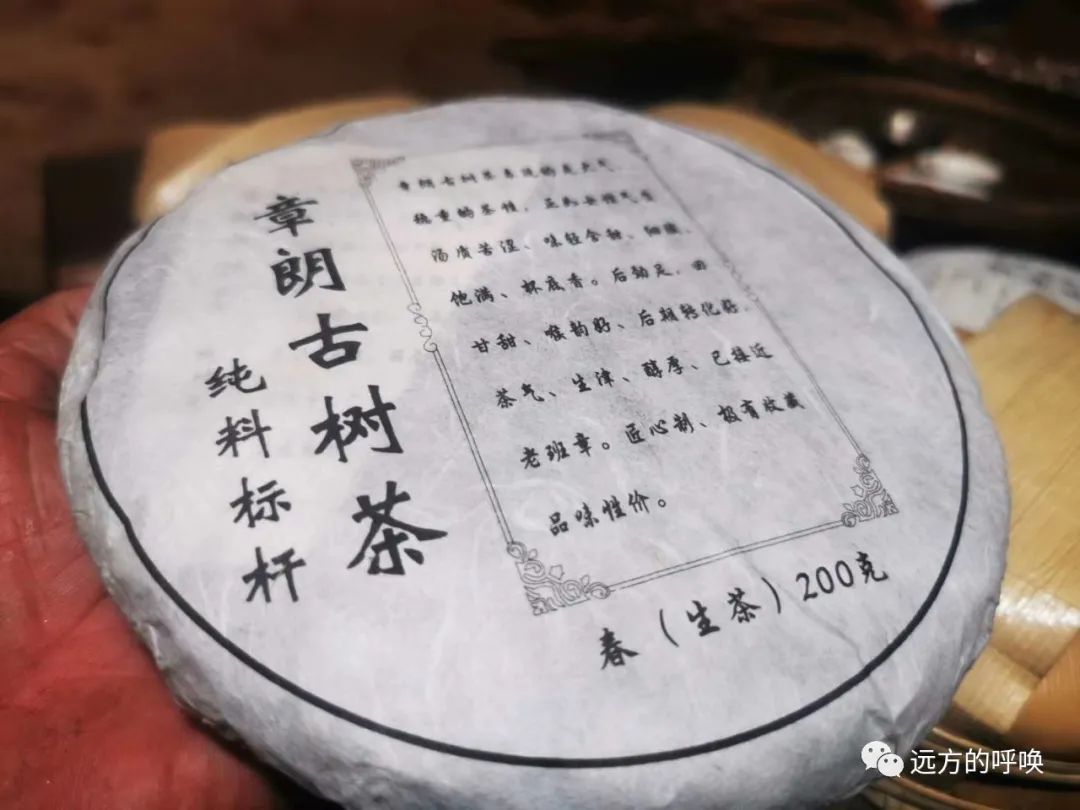 章朗古树茶
纯料标杆
章朗古树茶表现的是大气
稳重的茶性，正气
汤质苦涩、味轻含甜、细腻、
饱满、杯底香。后劲足，回
甘甜、喉韵好、后期转化好，
茶气、生津、醇厚、已接近
老班章。匠心制、极有收藏
品味性价。
春（生茶）200克
远方的呼唤